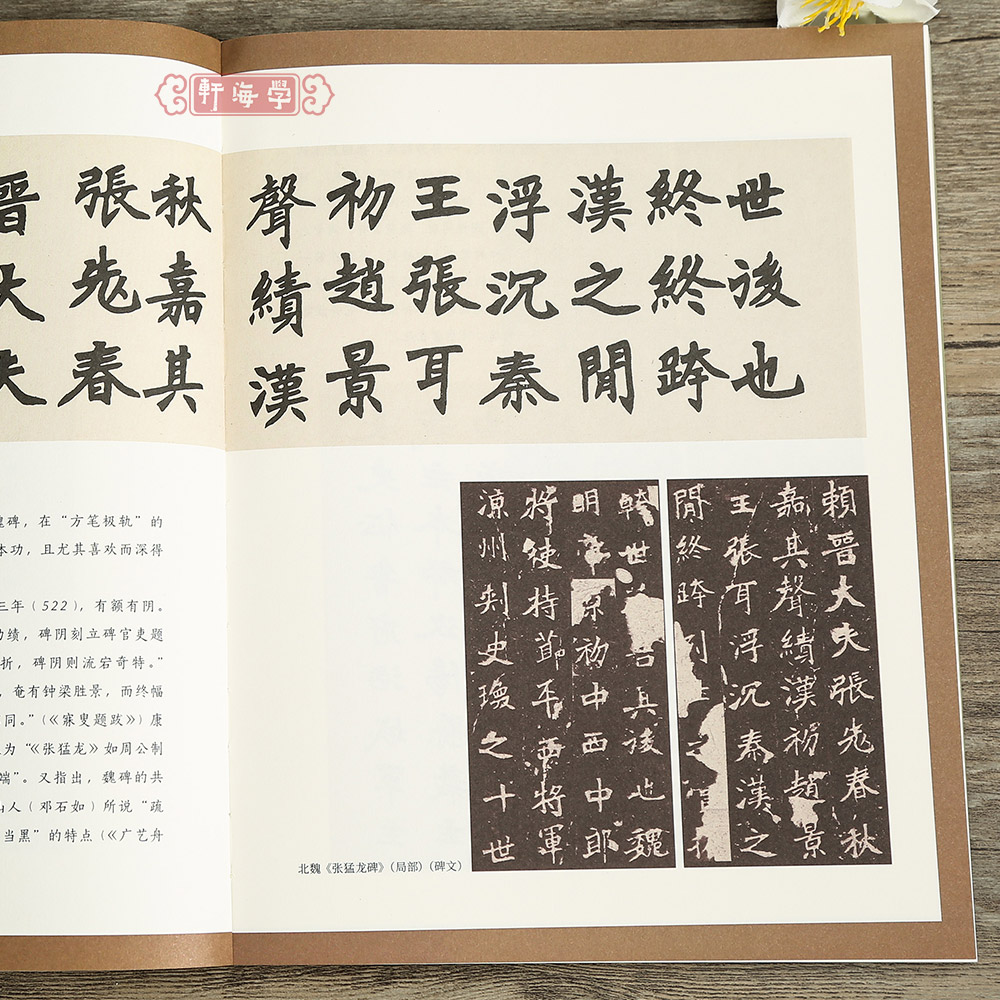 學海軒
世後也
終終跨
漢之閒
浮沉秦
王張耳
初趙景
聲績漢
秋嘉其
張老春
晉大夫
魏碑，在“方笔极轨”的
本功，且尤其喜欢而深得
三年（522），有额有阴。
功绩，碑阴刻立碑官吏题
折，碑阴则流宕奇特。”
，奄有钟梁胜景，而终幅
同。”（《寐叟题跋》）康
为“《张猛龙》如周公制
端”。又指出，魏碑的共
山人（邓石如）所说“疏
当黑”的特点（《广艺舟
頼晉大夫張老春秋
嘉其聲績漢初趙景
王張耳浮沉秦漢之
閒終跨列之
世君其後也魏
明帝景初中西中郎
將使持節平西將軍
涼州刺史瓊之十世
北魏《张猛龙碑》（局部）（碑文）